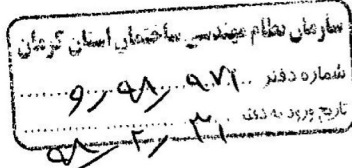 سازمان نظام مهندسی ساختمان استان کرمان
شماره دفتر ۹۷۱ ۹۸ ر ۹
تاریخ ورود به دفتر ۳۱ ر ۲ ر ۹۸